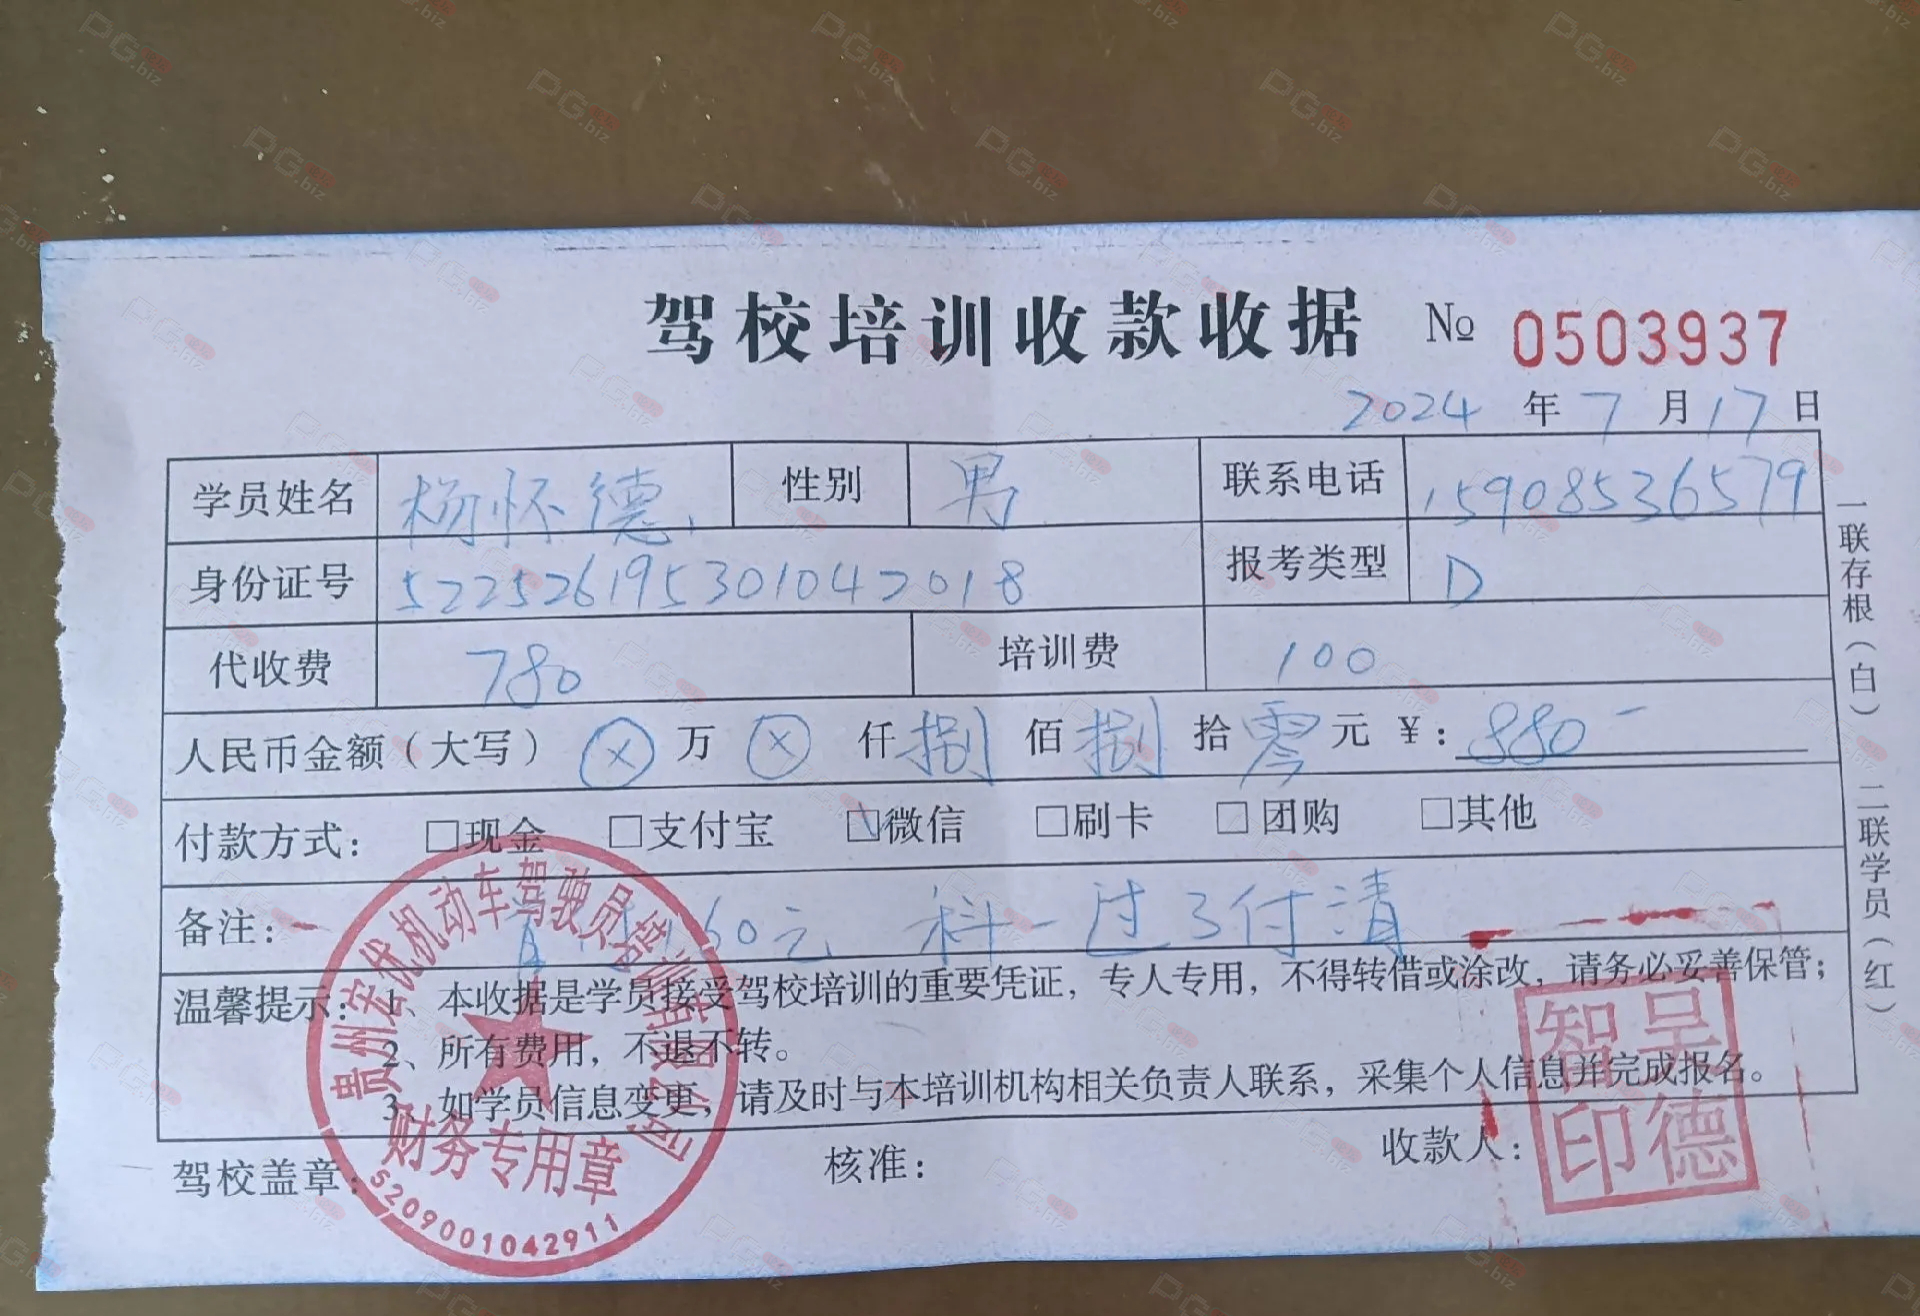 驾校培训收款收据 № 0503937
2024 年 7 月 17 日
学员姓名 杨怀德 性别 男 联系电话 15908536579
身份证号 522526195301042018 报考类型 D
代收费 780 培训费 100
人民币金额(大写) ⊗ 万 ⊗ 仟 捌 佰 捌 拾 零 元 ¥: 880-
付款方式: □现金 □支付宝 ☑微信 □刷卡 □团购 □其他
备注: 60元 科一过了付清
温馨提示: 1、本收据是学员接受驾校培训的重要凭证, 专人专用, 不得转借或涂改, 请务必妥善保管;
2、所有费用, 不退不转。
3、如学员信息变更, 请及时与本培训机构相关负责人联系, 采集个人信息并完成报名。
驾校盖章: 核准: 收款人:
一联存根(白) 二联学员(红)
贵州安优机动车驾驶员培训有限公司
财务专用章
5209001042911
吴德智印
PG.biz